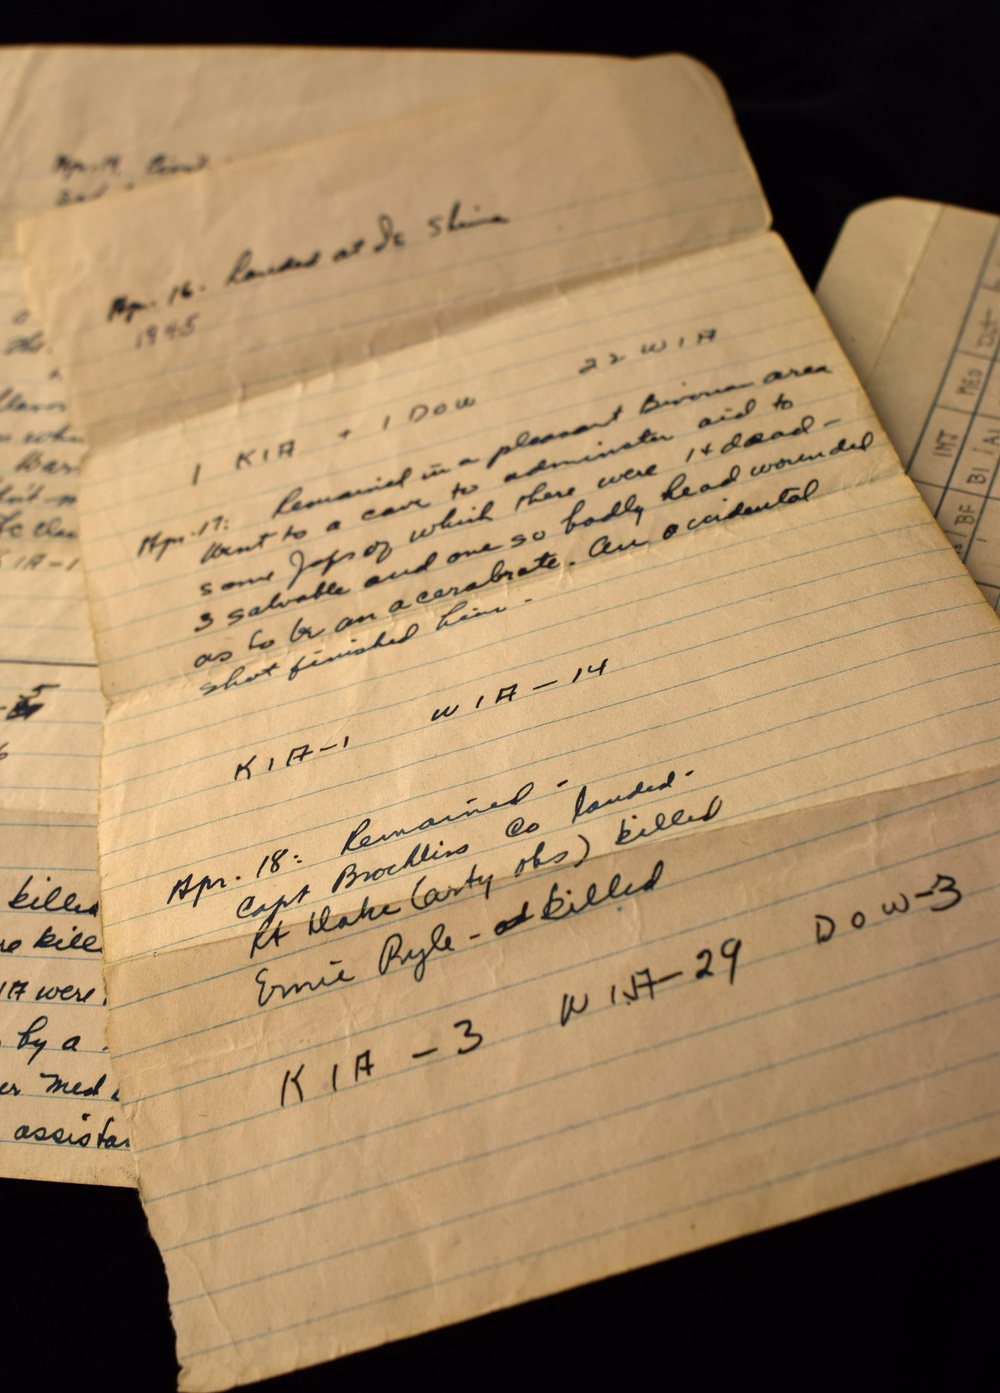 Apr. 19.
Apr. 16. Landed at Ie Shima
1945
1 KIA + 1 DOW 22 WIA
Apr. 17: Remained in a pleasant Bivouac area
Went to a cave to administer aid to
some Japs of which there were 14 dead -
3 salvable and one so badly head wounded
as to be an acerabrate. An accidental
shot finished him -
KIA-1 WIA-14
Apr. 18: Remained -
Capt Brochliss Co landed -
Lt Blake (arty obs) killed
Ernie Pyle - killed
KIA - 3 WIA-29 DOW-3
KIA-1
killed
were
by a
Med
INT
MED
BF
BI